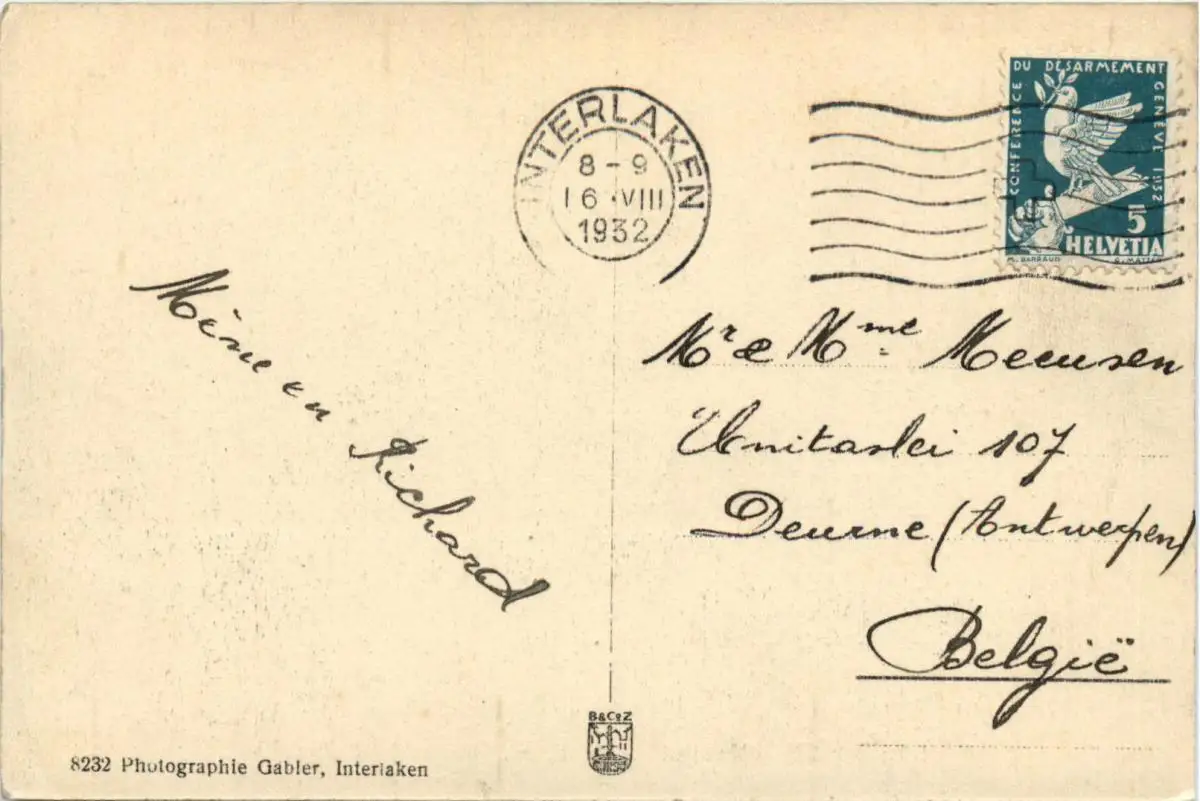 INTERLAKEN
8-9
16.VIII
1932
CONFERENCE DU DÉSARMEMENT GENÈVE 1932
5
HELVETIA
M. BARRAUD
Mine en
Richard
Mr & Mme Meeusen
Unitaslei 107
Deurne (Antwerpen)
België
B&CoZ
8232 Photographie Gabler, Interlaken